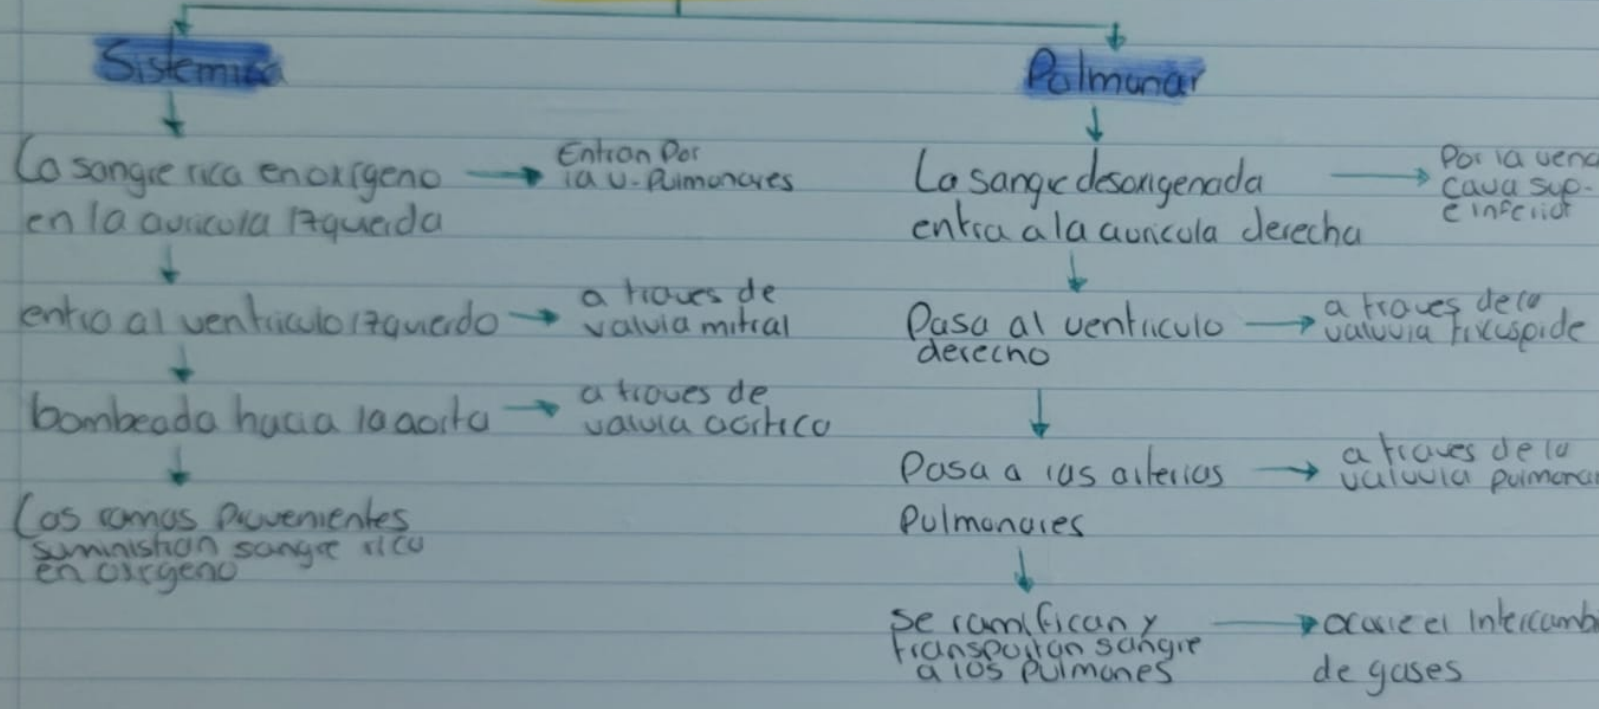 Sistemica
La sangre rica en oxígeno
en la auricula Izquerda
Entran Por
la v. Pulmonares
entra al ventriculo Izquierdo
a traves de
valvia mitral
bombeada hacia la aorta
a traves de
valvia aortico
Las ramas provenientes
suministran sangre rica
en oxigeno
Pulmunar
La sangre desoxigenada
entra a la auricula derecha
Por la vena
cava sup.
e inferior
Pasa al ventriculo
derecho
a traves de la
valvula tricuspide
Pasa a las arterias
Pulmonares
a traves de la
valvula pulmona
se ramifican y
transportan sangre
a los Pulmones
ocurre el Intercamb
de gases